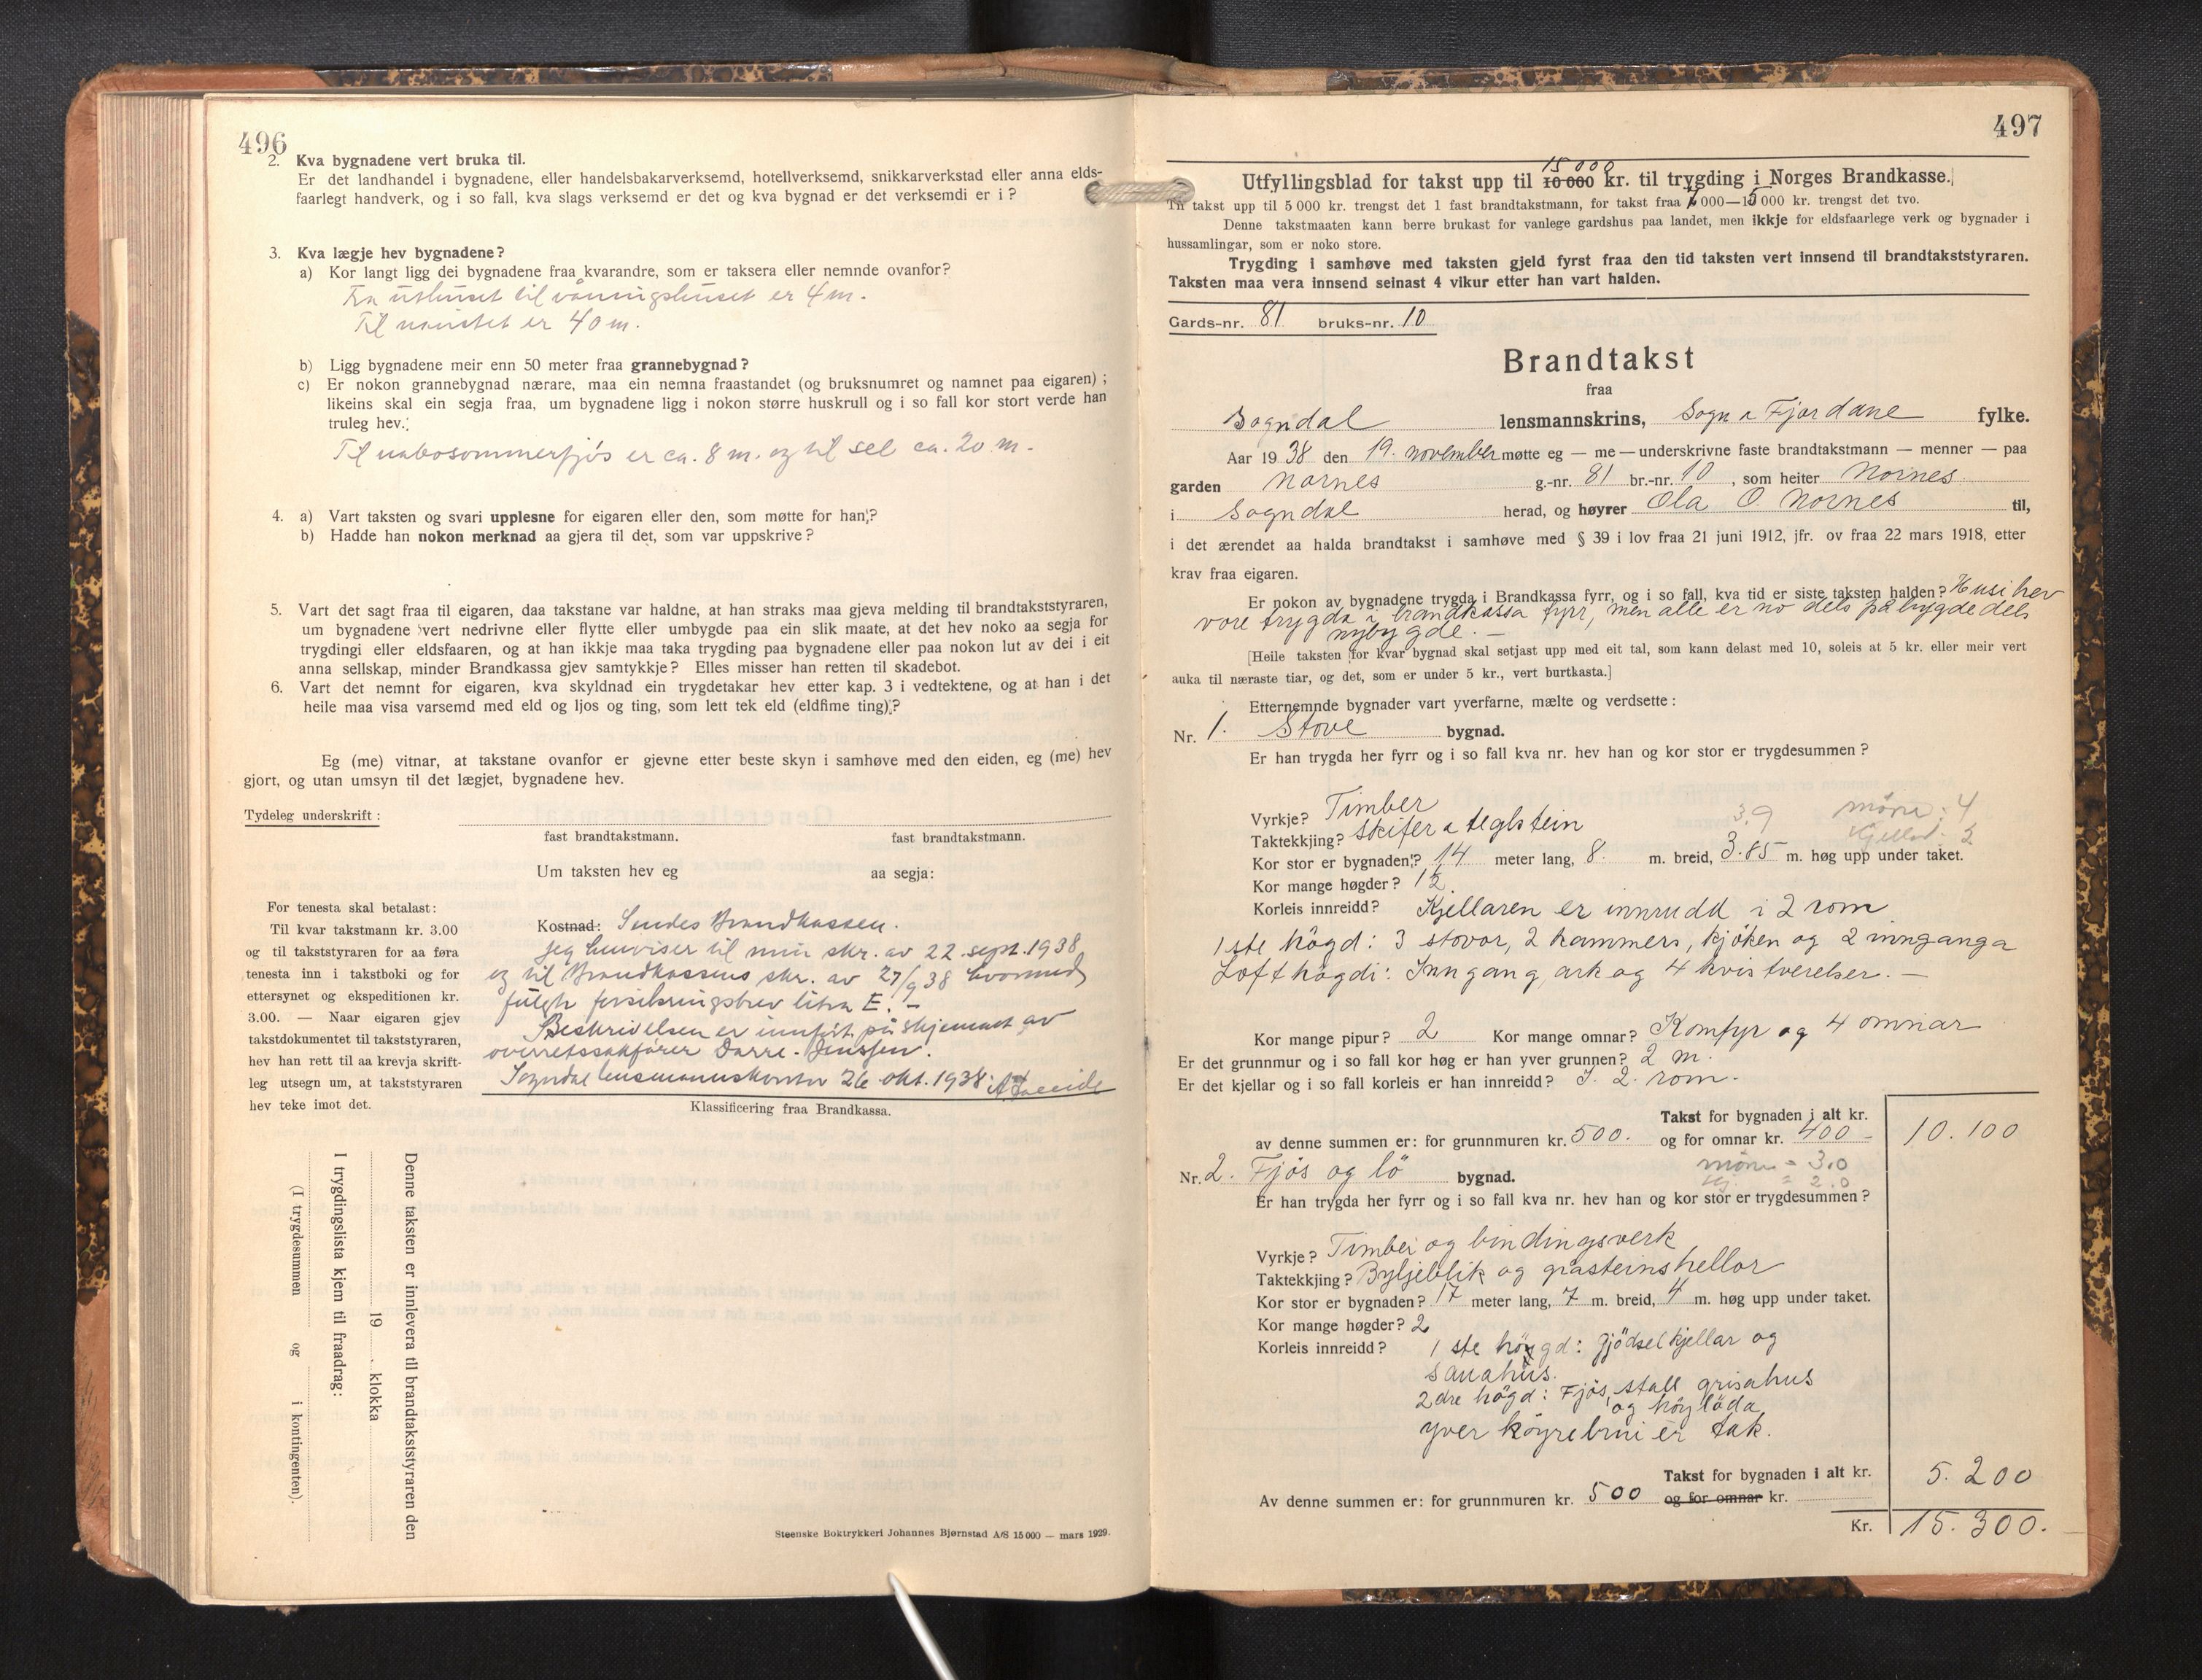 496
2. Kva bygnadene vert bruka til.
Er det landhandel i bygnadene, eller handelsbakarverksemd, hotellverksemd, snikkarverkstad eller anna elds-
faarlegt handverk, og i so fall, kva slags verksemd er det og kva bygnad er det verksemdi er i ?
3. Kva lægje hev bygnadene?
a) Kor langt ligg dei bygnadene fraa kvarandre, som er taksera eller nemnde ovanfor?
Fra uthuset til våningshuset er 4 m.
Til naustet er 40 m.
b) Ligg bygnadene meir enn 50 meter fraa grannebygnad ?
c) Er nokon grannebygnad nærare, maa ein nemna fraastandet (og bruksnumret og namnet paa eigaren) ;
likeins skal ein segja fraa, um bygnadene ligg i nokon større huskrull og i so fall kor stort verde han
truleg hev.
Til nabosommerfjøs er ca. 8 m. og til sel ca. 20 m.
4. a) Vart taksten og svari upplesne for eigaren eller den, som møtte for han?
b) Hadde han nokon merknad aa gjera til det, som var uppskrive ?
5. Vart det sagt fraa til eigaren, daa takstane var haldne, at han straks maa gjeva melding til brandtakststyraren,
um bygnadene vert nedrivne eller flytte eller umbygde paa ein slik maate, at det hev noko aa segja for
trygdingi eller eldsfaaren, og at han ikkje maa taka trygding paa bygnadene eller paa nokon lut av dei i eit
anna sellskap, minder Brandkassa gjev samtykkje? Elles misser han retten til skadebot.
6. Vart det nemnt for eigaren, kva skyldnad ein trygdetakar hev etter kap. 3 i vedtektene, og at han i det
heile maa visa varsemd med eld og ljos og ting, som lett tek eld (eldfime ting)?
Eg (me) vitnar, at takstane ovanfor er gjevne etter beste skyn i samhøve med den eiden, eg (me) hev
gjort, og utan umsyn til det lægjet, bygnadene hev.
Tydeleg underskrift :
fast brandtakstmann. fast brandtakstmann.
Um taksten hev eg aa segja:
For tenesta skal betalast:
Til kvar takstmann kr. 3.00
og til takststyraren for aa føra
tenesta inn i takstboki og for
ettersynet og ekspeditionen kr.
3.00. — Naar eigaren gjev
takstdokumentet til takststyraren,
hev han rett til aa krevja skrift-
leg utsegn um, at takststyraren
hev teke imot det.
Kostnad: Sendes Brandkassen.
Jeg henviser til min skr. av 22. sept. 1938
og til Brandkassens skr. av 27/9 38 hvormed
fulgte forsikringsbrev litra E. —
Beskrivelsen er innført på skjemaet av
overretssakfører Darre-Jenssen.
Sogndal lensmannskontor 26 okt. 1938.
Klassificering fraa Brandkassa.
Denne taksten er innlevera til brandtakststyraren den
19 klokka
I trygdingslista kjem til fraadrag:
(I trygdesummen og i kontingenten).
Steenske Boktrykkeri Johannes Bjørnstad A/S 15 000 — mars 1929.
497
15 000
Utfyllingsblad for takst upp til 10 000 kr. til trygding i Norges Brandkasse.
Til takst upp til 5 000 kr. trengst det 1 fast brandtakstmann, for takst fraa 000—15 000 kr. trengst det tvo.
Denne takstmaaten kann berre brukast for vanlege gardshus paa landet, men ikkje for eldsfaarlege verk og bygnader i
hussamlingar, som er noko store.
Trygding i samhøve med taksten gjeld fyrst fraa den tid taksten vert innsend til brandtakststyraren.
Taksten maa vera innsend seinast 4 vikur etter han vart halden.
Gards-nr. 81 bruks-nr. 10
Brandtakst
fraa
Sogndal lensmannskrins, Sogn & Fjordane fylke.
Aar 1938 den 19. november møtte eg — me — underskrivne faste brandtakstmann — menner — paa
garden Nornes g.-nr. 81 br.-nr. 10, som heiter Nornes
i Sogndal herad, og høyrer Ola O. Nornes til,
i det ærendet aa halda brandtakst i samhøve med § 39 i lov fraa 21 juni 1912, jfr. ov fraa 22 mars 1918, etter
krav fraa eigaren.
Er nokon av bygnadene trygda i Brandkassa fyrr, og i so fall, kva tid er siste taksten halden? Husi hev
vore trygda i brandkassa fyrr, men alle er no dels påbygde dels
nybygde. —
[Heile taksten for kvar bygnad skal setjast upp med eit tal, som kann delast med 10, soleis at 5 kr. eller meir vert
auka til næraste tiar, og det, som er under 5 kr., vert burtkasta.]
Etternemnde bygnader vart yverfarne, mælte og verdsette :
Nr. 1. Stove bygnad.
Er han trygda her fyrr og i so fall kva nr. hev han og kor stor er trygdesummen ?
Vyrkje? Timber
3.9 møne: 4
Taktekkjing? Skifer & teglstein
Kjellar: 2
Kor stor er bygnaden? 14 meter lang, 8. m. breid, 3.85 m. høg upp under taket.
Kor mange høgder? 1½.
Korleis innreidd? Kjellaren er innrudd i 2 rom
1ste høgd: 3 stovor, 2 kammers, kjøken og 2 innganga
Lofthøgdi: Inngang, ark og 4 kvistverelser. —
Kor mange pipur? 2 Kor mange omnar? Komfyr og 4 omnar
Er det grunnmur og i so fall kor høg er han yver grunnen? 2 m.
Er det kjellar og i so fall korleis er han innreidd? I. 2. rom.
Takst for bygnaden i alt kr. 10.100
av denne summen er: for grunnmuren kr. 500. og for omnar kr. 400 -
Nr. 2. Fjøs og lø bygnad.
møne = 3.0
kj. = 2.0
Er han trygda her fyrr og i so fall kva nr. hev han og kor stor er trygdesummen ?
Vyrkje? Timber og bindingsverk
Taktekkjing? Bylgjeblik og gråsteinshellor
Kor stor er bygnaden? 17 meter lang, 7 m. breid, 4 m. høg upp under taket.
Kor mange høgder? 2
Korleis innreidd? 1 ste høgd: gjødselkjellar og
sauahus.
2dre høgd: Fjøs, stall grisahus
og høyløda
yver køyrebrui er tak.
Takst for bygnaden i alt kr. 5.200
Av denne summen er: for grunnmuren kr. 500 og for omnar kr.
Kr. 15.300.